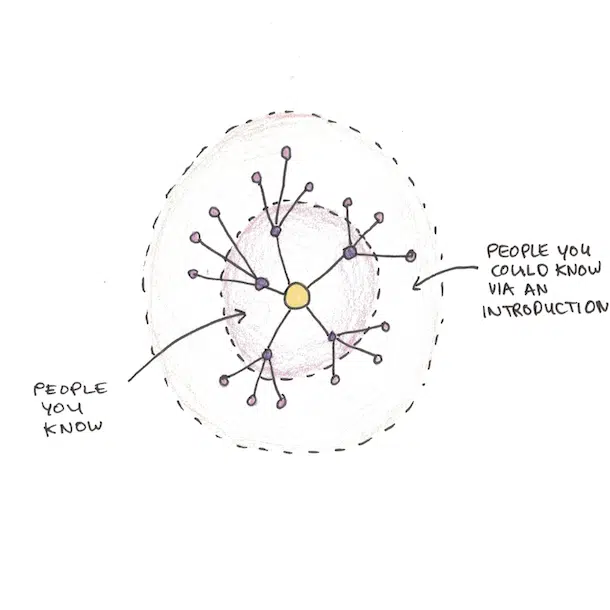 PEOPLE YOU
COULD KNOW
VIA AN
INTRODUCTION
PEOPLE
YOU
KNOW